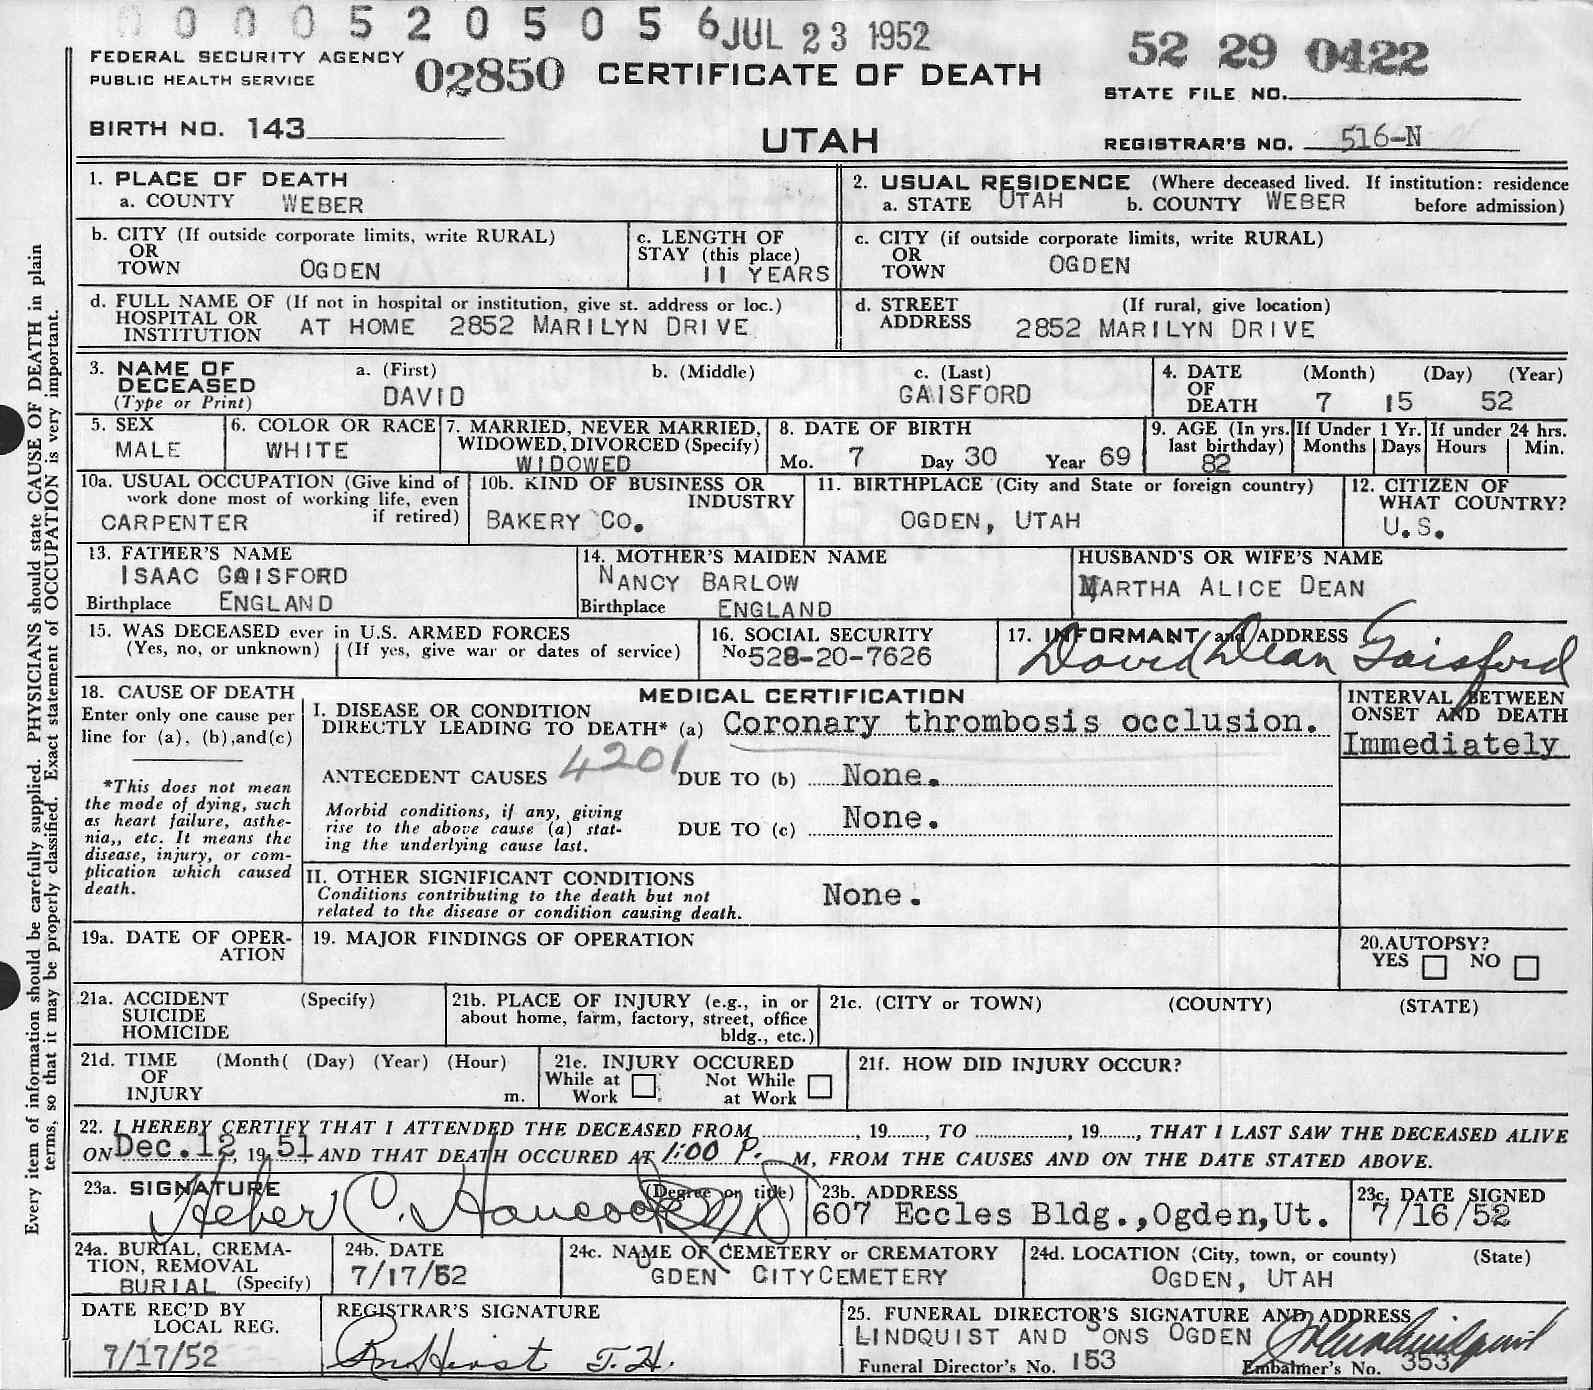 0 0 0 0 5 2 0 5 0 5 6 JUL 23 1952
FEDERAL SECURITY AGENCY
PUBLIC HEALTH SERVICE
02850 CERTIFICATE OF DEATH
52 29 0422
STATE FILE NO.
BIRTH NO. 143
UTAH
REGISTRAR'S NO. 516-N
1. PLACE OF DEATH
a. COUNTY WEBER
2. USUAL RESIDENCE (Where deceased lived. If institution: residence before admission)
a. STATE UTAH b. COUNTY WEBER
b. CITY (If outside corporate limits, write RURAL)
OR
TOWN OGDEN
c. LENGTH OF
STAY (this place)
11 YEARS
c. CITY (if outside corporate limits, write RURAL)
OR
TOWN OGDEN
d. FULL NAME OF (If not in hospital or institution, give st. address or loc.)
HOSPITAL OR
INSTITUTION AT HOME 2852 MARILYN DRIVE
d. STREET (If rural, give location)
ADDRESS 2852 MARILYN DRIVE
3. NAME OF
DECEASED
(Type or Print)
a. (First) b. (Middle) c. (Last)
DAVID GAISFORD
4. DATE (Month) (Day) (Year)
OF
DEATH 7 15 52
5. SEX
MALE
6. COLOR OR RACE
WHITE
7. MARRIED, NEVER MARRIED,
WIDOWED, DIVORCED (Specify)
WIDOWED
8. DATE OF BIRTH
Mo. 7 Day 30 Year 69
9. AGE (In yrs. last birthday)
82
If Under 1 Yr. If under 24 hrs.
Months Days Hours Min.
10a. USUAL OCCUPATION (Give kind of
work done most of working life, even
if retired)
CARPENTER
10b. KIND OF BUSINESS OR
INDUSTRY
BAKERY CO.
11. BIRTHPLACE (City and State or foreign country)
OGDEN, UTAH
12. CITIZEN OF
WHAT COUNTRY?
U.S.
13. FATHER'S NAME
ISAAC GAISFORD
Birthplace ENGLAND
14. MOTHER'S MAIDEN NAME
NANCY BARLOW
Birthplace ENGLAND
HUSBAND'S OR WIFE'S NAME
MARTHA ALICE DEAN
15. WAS DECEASED ever in U.S. ARMED FORCES
(Yes, no, or unknown) (If yes, give war or dates of service)
16. SOCIAL SECURITY
No 528-20-7626
17. INFORMANT and ADDRESS
David Dean Gaisford
18. CAUSE OF DEATH
Enter only one cause per
line for (a), (b),and(c)
*This does not mean
the mode of dying, such
as heart failure, asthe-
nia,, etc. It means the
disease, injury, or com-
plication which caused
death.
MEDICAL CERTIFICATION
I. DISEASE OR CONDITION
DIRECTLY LEADING TO DEATH* (a) Coronary thrombosis occlusion.
ANTECEDENT CAUSES 4201 DUE TO (b) None.
Morbid conditions, if any, giving
rise to the above cause (a) stat-
ing the underlying cause last.
DUE TO (c) None.
II. OTHER SIGNIFICANT CONDITIONS
Conditions contributing to the death but not
related to the disease or condition causing death.
None.
INTERVAL BETWEEN
ONSET AND DEATH
Immediately
19a. DATE OF OPER-
ATION
19. MAJOR FINDINGS OF OPERATION
20. AUTOPSY?
YES NO
21a. ACCIDENT (Specify)
SUICIDE
HOMICIDE
21b. PLACE OF INJURY (e.g., in or
about home, farm, factory, street, office
bldg., etc.)
21c. (CITY or TOWN) (COUNTY) (STATE)
21d. TIME (Month( (Day) (Year) (Hour)
OF
INJURY m.
21e. INJURY OCCURED
While at Work Not While at Work
21f. HOW DID INJURY OCCUR?
22. I HEREBY CERTIFY THAT I ATTENDED THE DECEASED FROM ........, 19......, TO ........, 19......, THAT I LAST SAW THE DECEASED ALIVE
ON Dec. 12, 19 51 AND THAT DEATH OCCURED AT 1:00 P. M, FROM THE CAUSES AND ON THE DATE STATED ABOVE.
23a. SIGNATURE (Degree or title)
Heber C. Hancock MD
23b. ADDRESS
607 Eccles Bldg., Ogden, Ut.
23c. DATE SIGNED
7/16/52
24a. BURIAL, CREMA-
TION, REMOVAL
BURIAL (Specify)
24b. DATE
7/17/52
24c. NAME OF CEMETERY or CREMATORY
OGDEN CITY CEMETERY
24d. LOCATION (City, town, or county) (State)
OGDEN, UTAH
DATE REC'D BY
LOCAL REG.
7/17/52
REGISTRAR'S SIGNATURE
T.H.
25. FUNERAL DIRECTOR'S SIGNATURE AND ADDRESS
LINDQUIST AND SONS OGDEN
Funeral Director's No. 153 Embalmer's No. 353
Every item of information should be carefully supplied. PHYSICIANS should state CAUSE OF DEATH in plain
terms, so that it may be properly classified. Exact statement of OCCUPATION is very important.